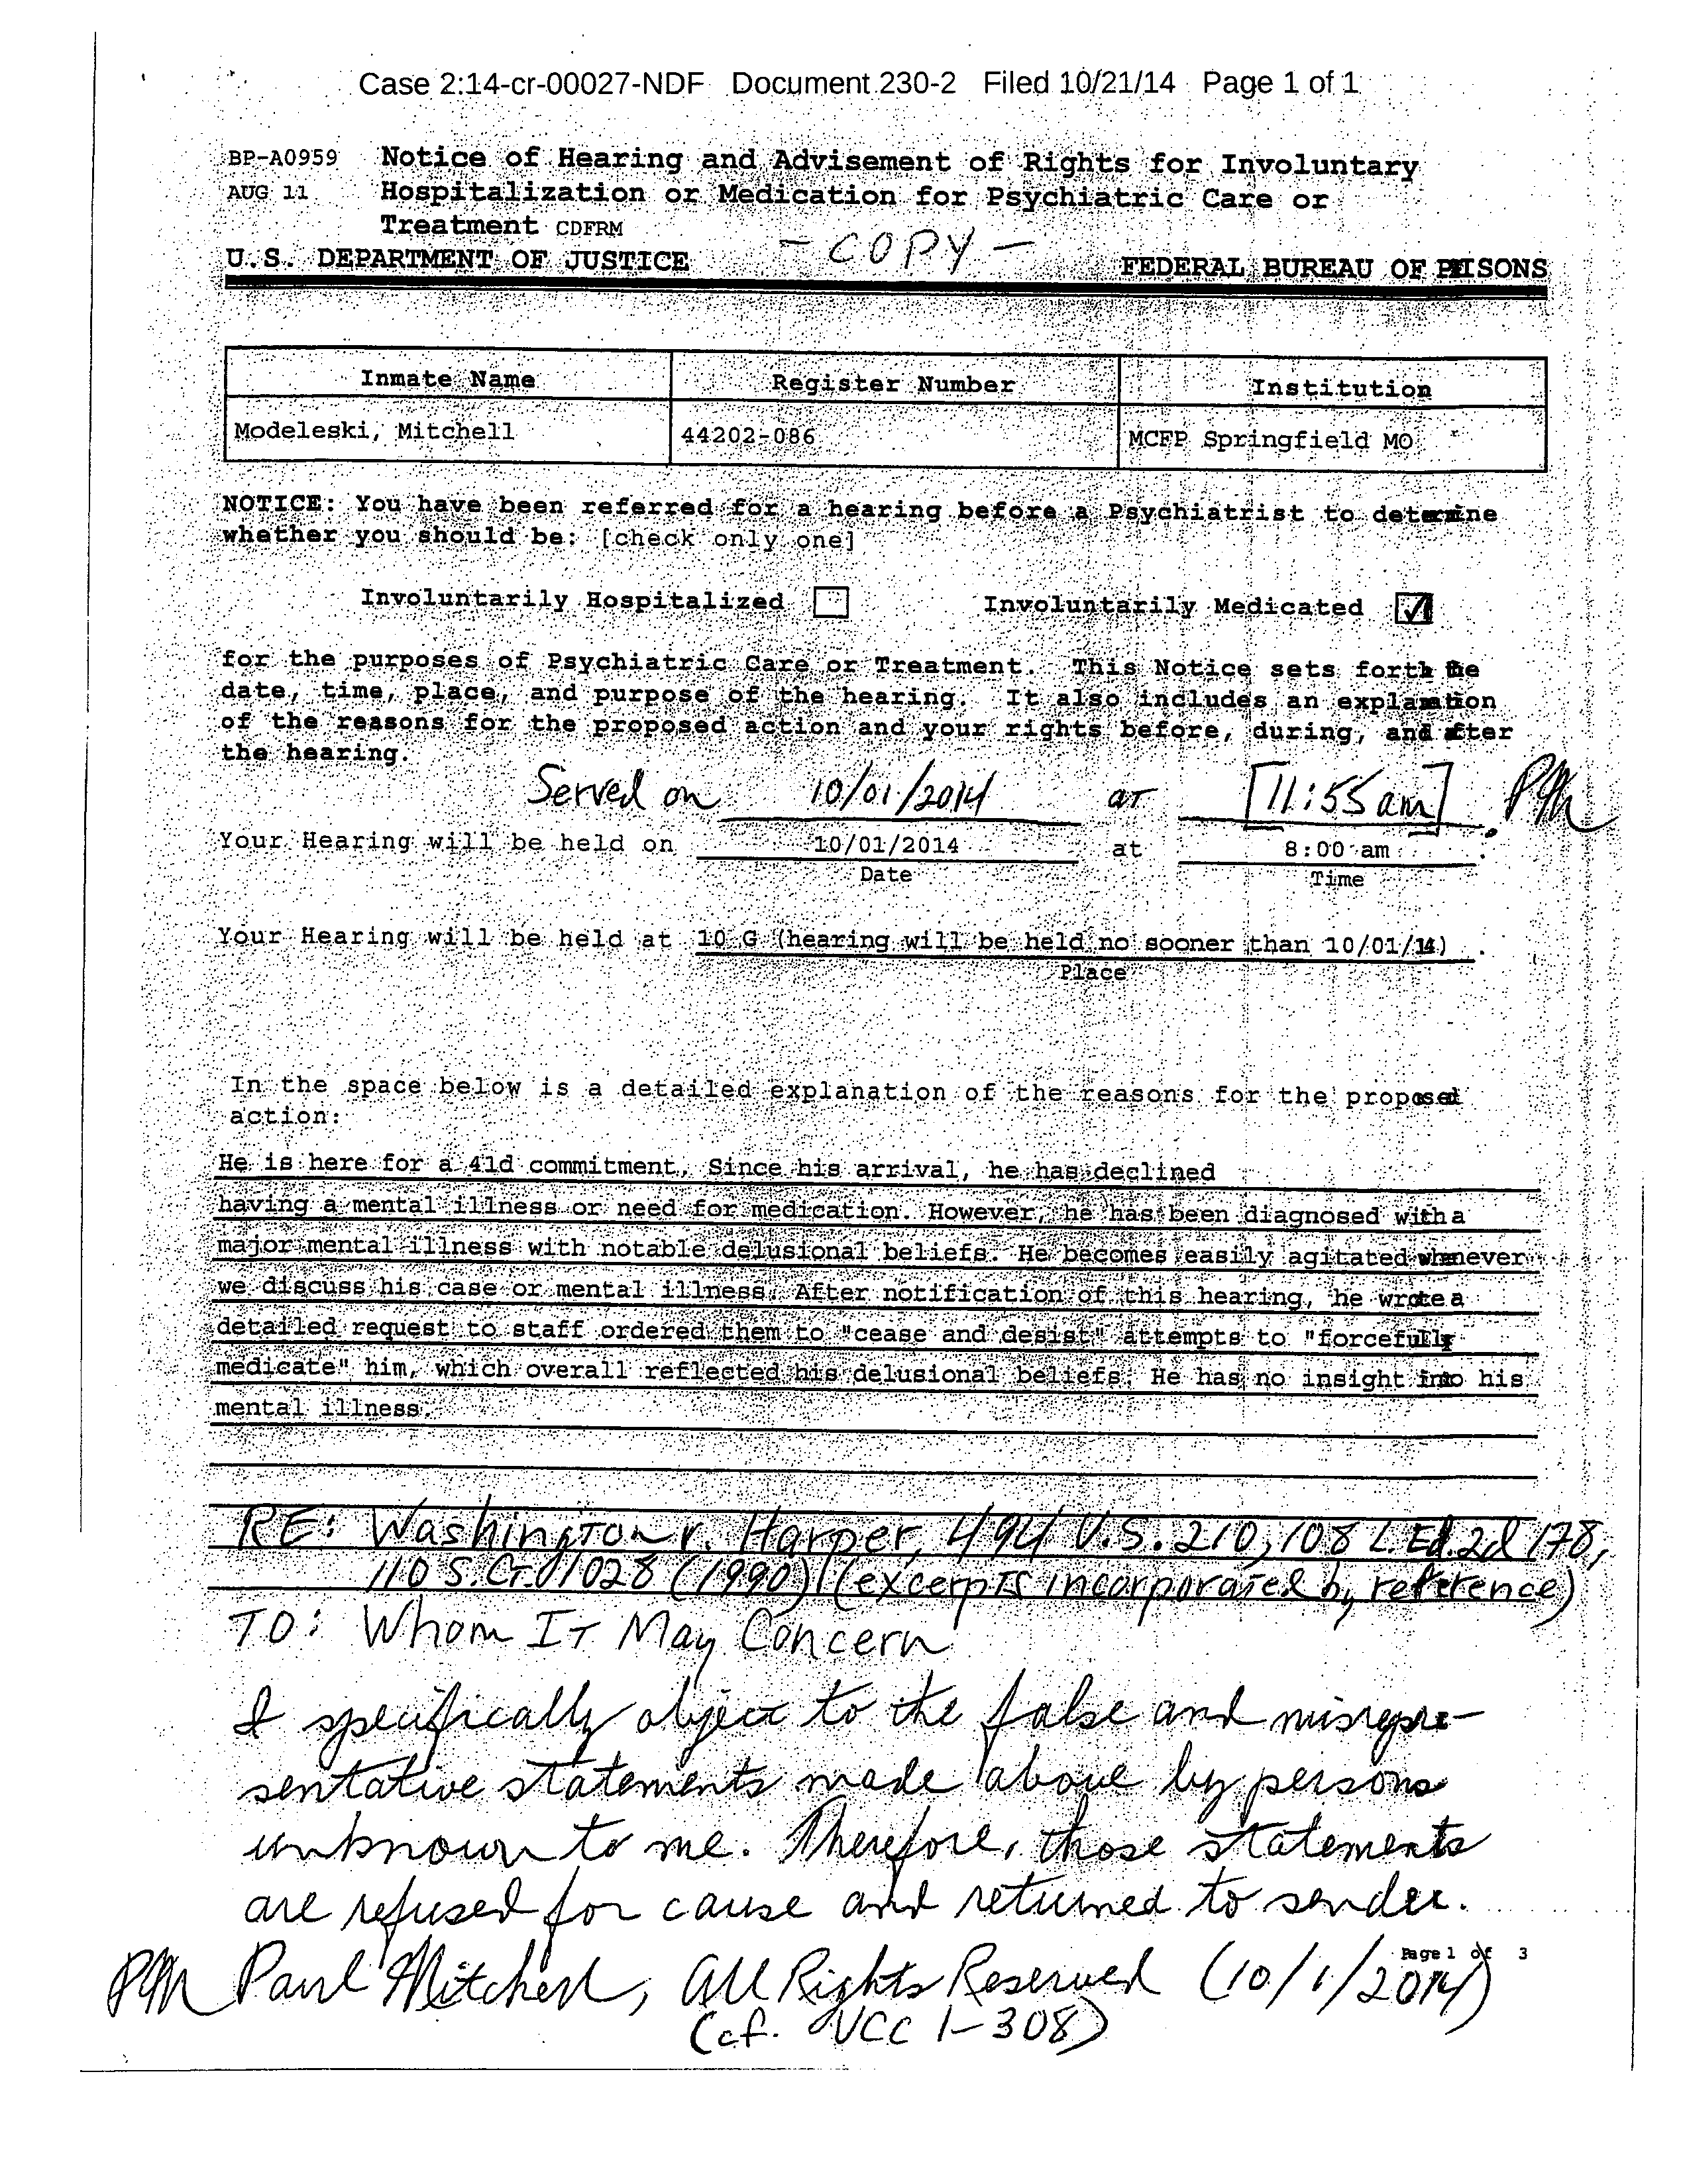 Case 2:14-cr-00027-NDF Document 230-2 Filed 10/21/14 Page 1 of 1
BP-A0959 Notice of Hearing and Advisement of Rights for Involuntary
AUG 11 Hospitalization or Medication for Psychiatric Care or
Treatment CDFRM
- COPY -
U.S. DEPARTMENT OF JUSTICE FEDERAL BUREAU OF PRISONS
Inmate Name Register Number Institution
Modeleski, Mitchell 44202-086 MCFP Springfield MO
NOTICE: You have been referred for a hearing before a Psychiatrist to determine
whether you should be: [check only one]
Involuntarily Hospitalized Involuntarily Medicated ✓
for the purposes of Psychiatric Care or Treatment. This Notice sets forth the
date, time, place, and purpose of the hearing. It also includes an explanation
of the reasons for the proposed action and your rights before, during, and after
the hearing.
Served on 10/01/2014 at [11:55 am]. PM
Your Hearing will be held on 10/01/2014 at 8:00 am.
Date Time
Your Hearing will be held at 10 G (hearing will be held no sooner than 10/01/14).
Place
In the space below is a detailed explanation of the reasons for the proposed
action:
He is here for a 41d commitment. Since his arrival, he has declined
having a mental illness or need for medication. However, he has been diagnosed with a
major mental illness with notable delusional beliefs. He becomes easily agitated whenever
we discuss his case or mental illness. After notification of this hearing, he wrote a
detailed request to staff ordered them to "cease and desist" attempts to "forcefully
medicate" him, which overall reflected his delusional beliefs. He has no insight into his
mental illness.
RE: Washington v. Harper, 494 U.S. 210, 108 L.Ed.2d 178,
110 S.Ct. 1028 (1990) (excerpts incorporated by reference)
TO: Whom It May Concern
I specifically object to the false and misrepre-
sentative statements made above by persons
unknown to me. Therefore, those statements
are refused for cause and returned to sender.
Page 1 of 3
PM Paul Mitchell, All Rights Reserved (10/1/2014)
(cf. UCC 1-308)